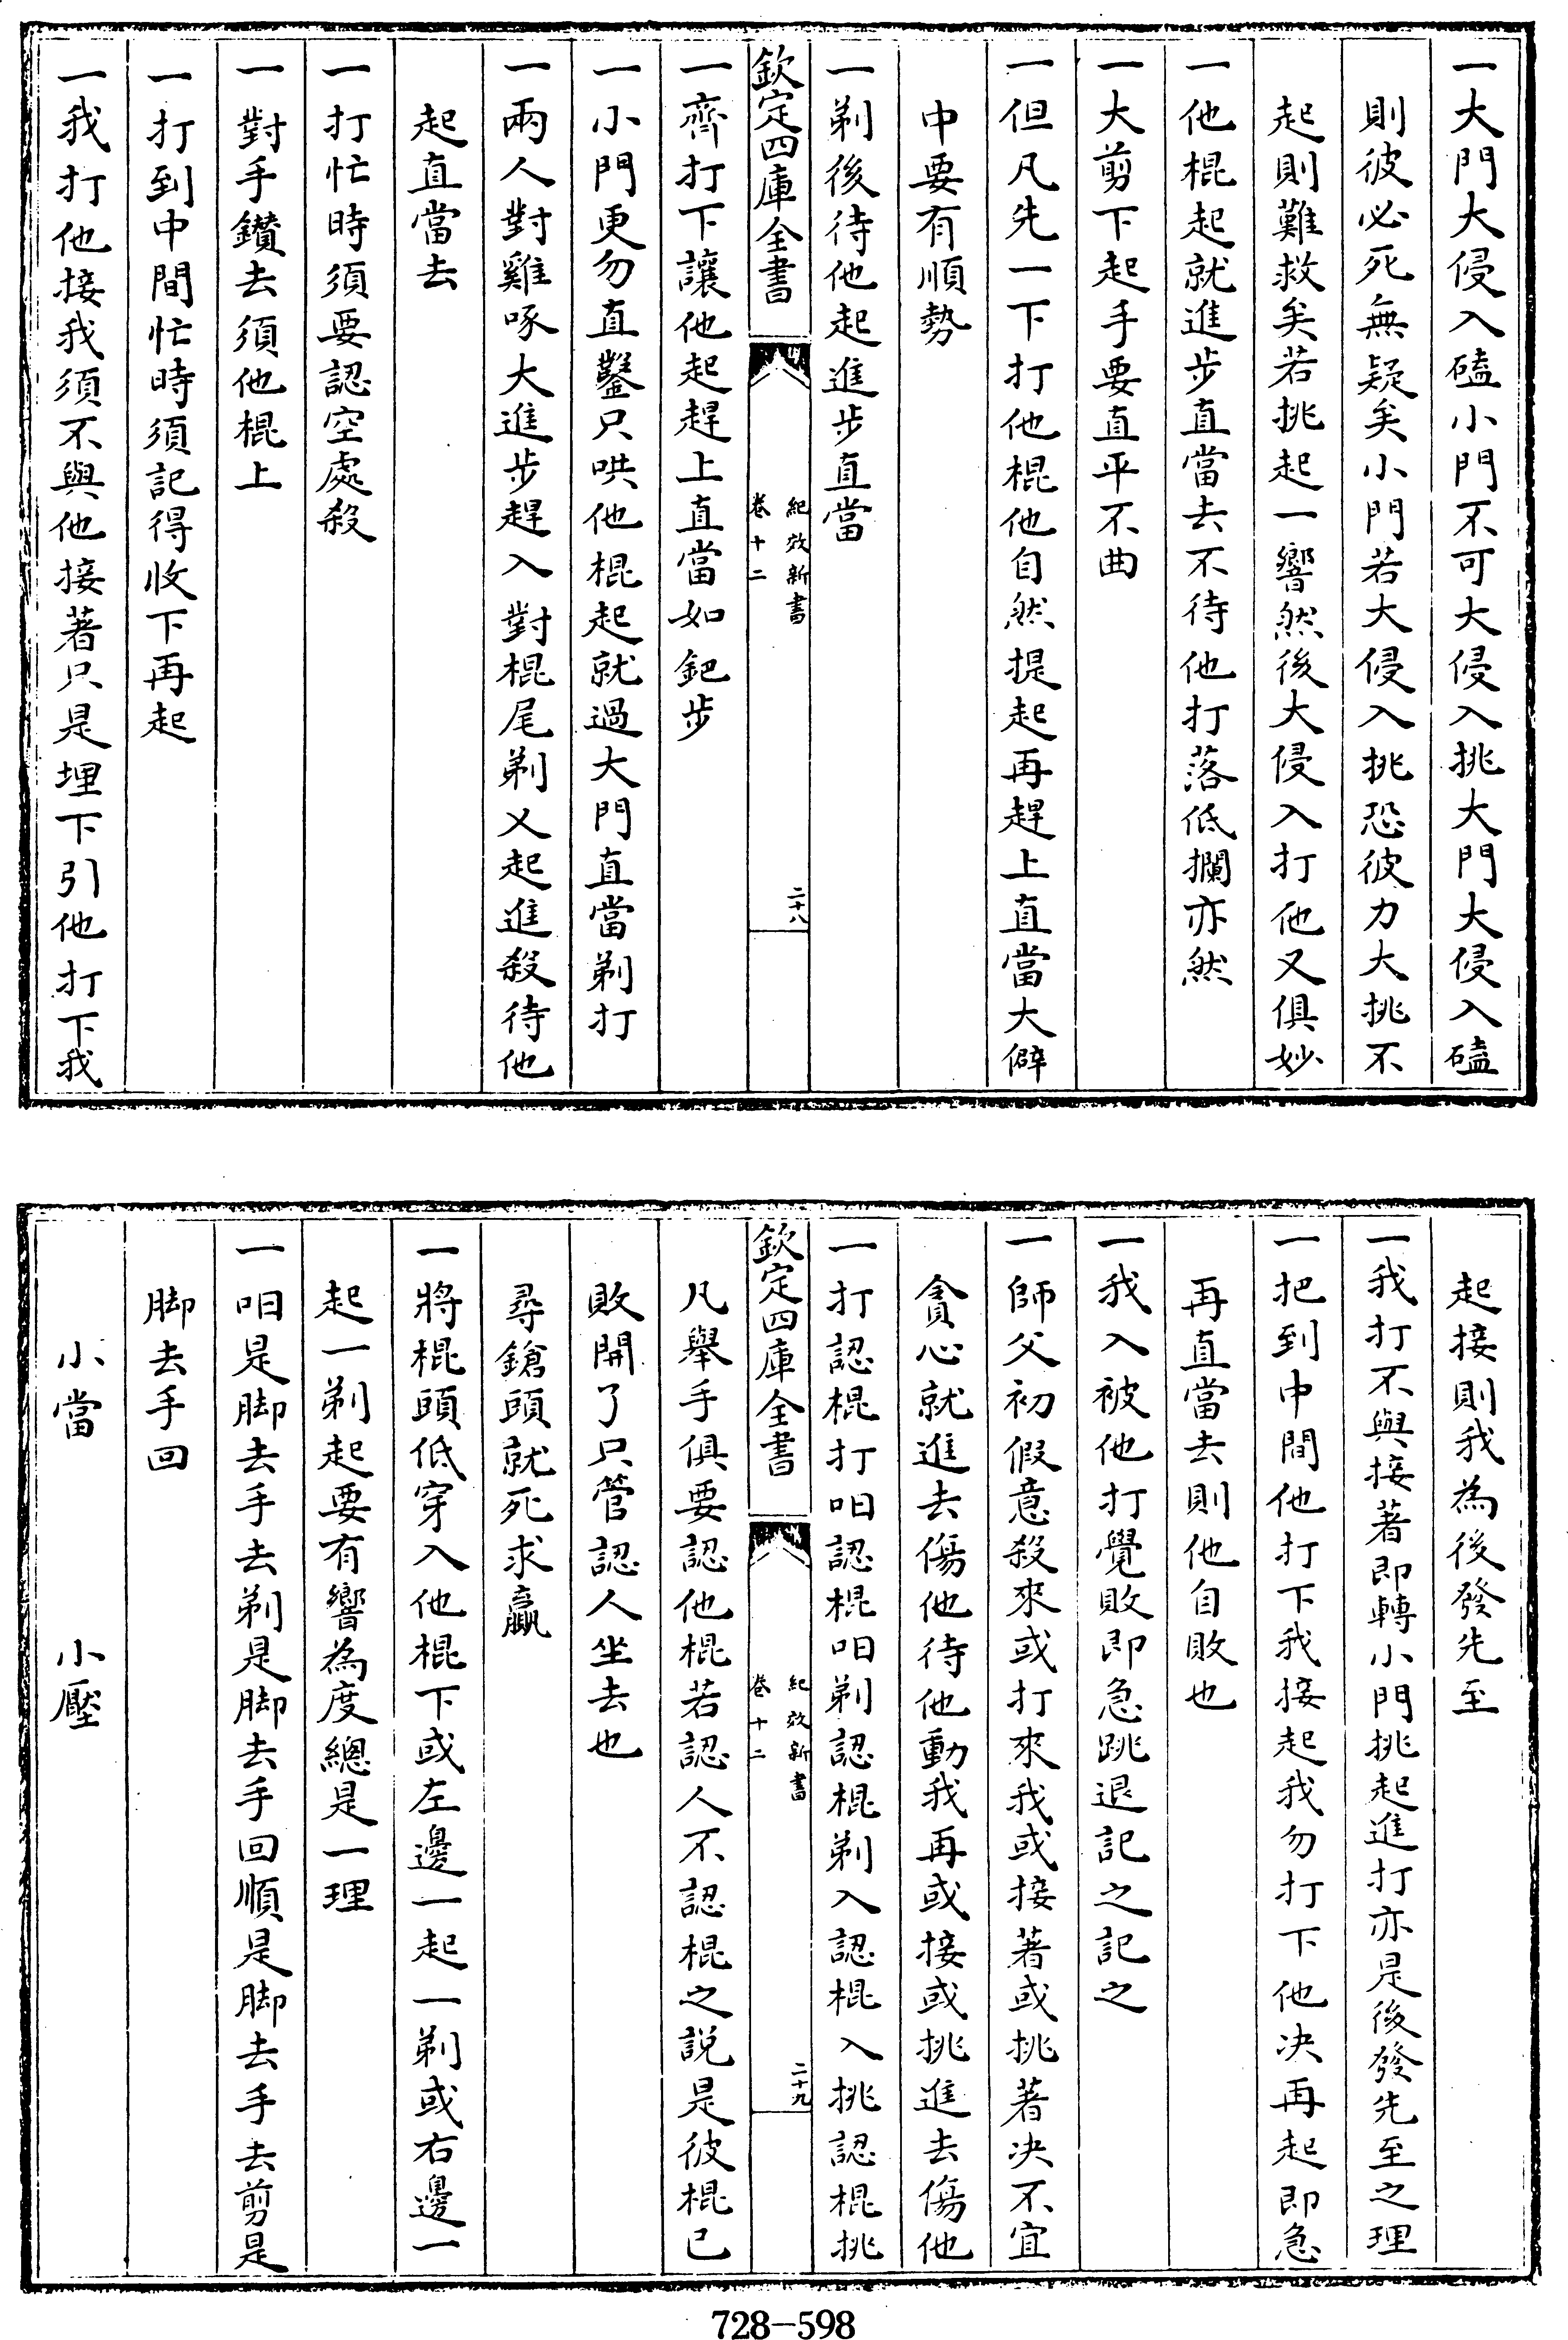 一大門大侵入磕小門不可大侵入挑大門大侵入磕
則彼必死無疑矣小門若大侵入挑恐彼力大挑不
起則難救矣若挑起一響然後大侵入打他又俱妙
一他棍起就進步直當去不待他打落低攔亦然
一大剪下起手要直平不曲
一但凡先一下打他棍他自然提起再趕上直當大僻
中要有順勢
一剃後待他起進步直當
欽定四庫全書
紀效新書
卷十二
二十八
一齊打下讓他起趕上直當如鈀步
一小門更勿直鑿只哄他棍起就過大門直當剃打
一兩人對雞啄大進步趕入對棍尾剃乂起進殺待他
起直當去
一打忙時須要認空處殺
一對手鑽去須他棍上
一打到中間忙時須記得收下再起
一我打他接我須不與他接著只是埋下引他打下我
起接則我為後發先至
一我打不與接著即轉小門挑起進打亦是後發先至之理
一把到中間他打下我接起我勿打下他决再起即急
再直當去則他自敗也
一我入被他打覺敗即急跳退記之記之
一師父初假意殺來或打來我或接著或挑著决不宜
貪心就進去傷他待他動我再或接或挑進去傷他
一打認棍打呾認棍呾剃認棍剃入認棍入挑認棍挑
欽定四庫全書
紀效新書
卷十二
二十九
凡舉手俱要認他棍若認人不認棍之說是彼棍已
敗開了只管認人坐去也
尋鎗頭就死求贏
一將棍頭低穿入他棍下或左邊一起一剃或右邊一
起一剃起要有響為度總是一理
一呾是脚去手去剃是脚去手回順是脚去手去剪是
脚去手回
小當 小壓
728-598